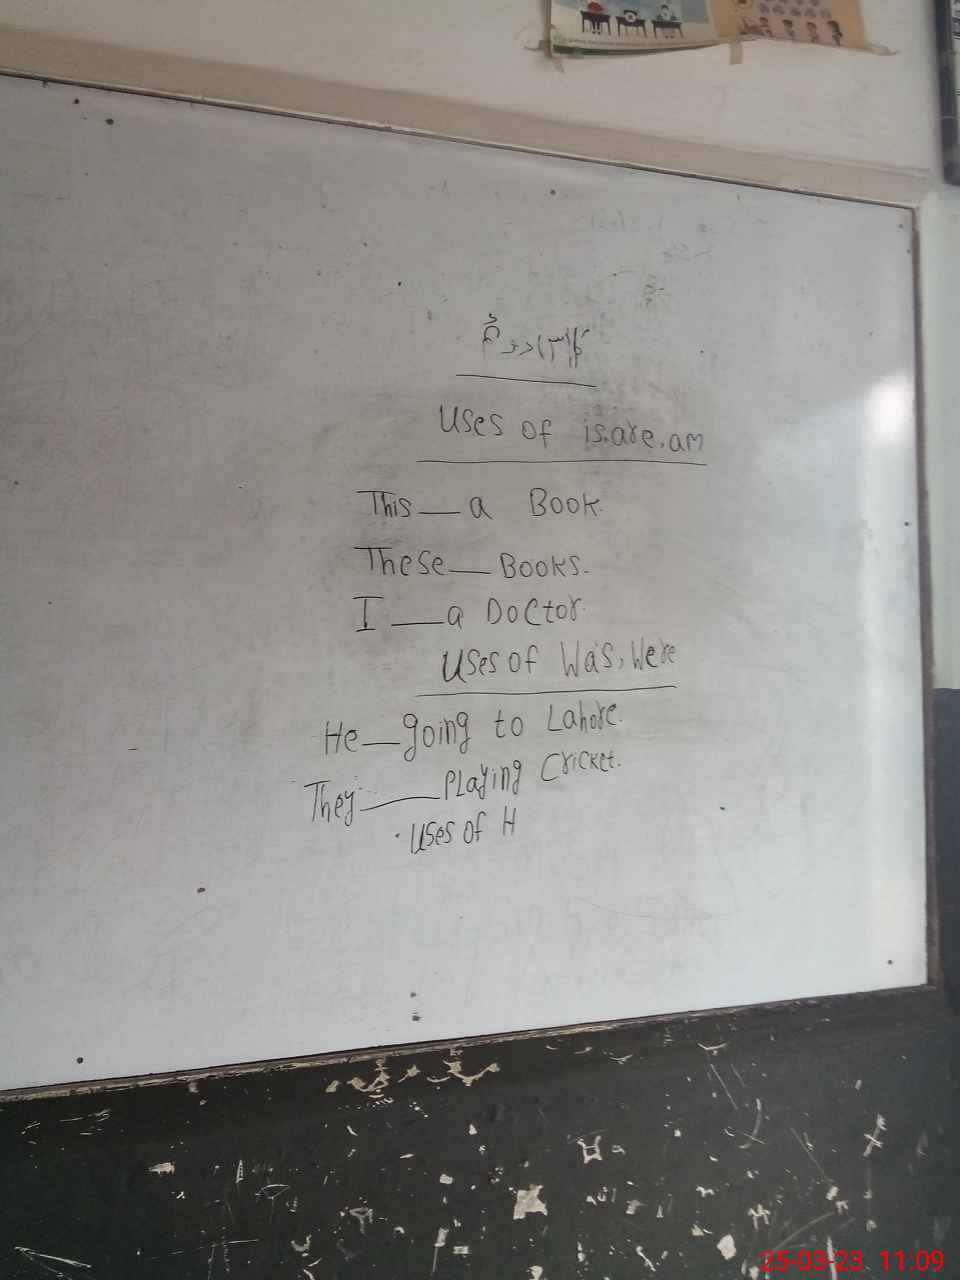 دوئم
Uses of is, are, am
This __ a Book.
These __ Books.
I __ a Doctor.
Uses of Was, Were
He __ going to Lahore.
They __ Playing Cricket.
Uses of H
25-03-23 11:09